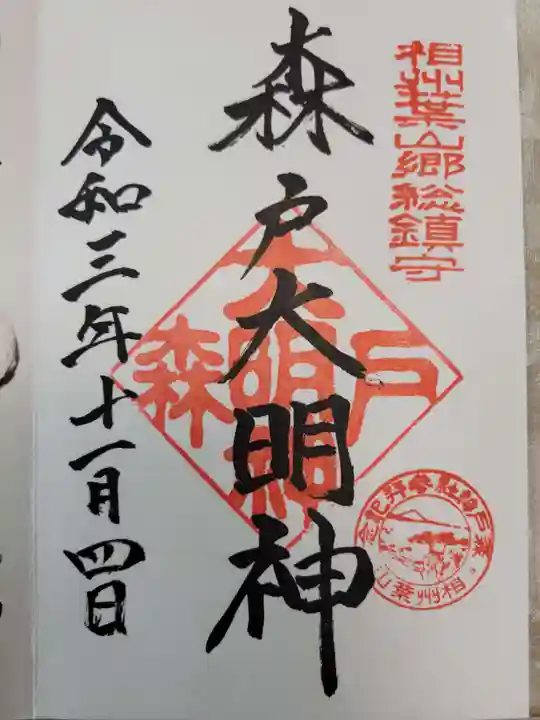 相州葉山郷総鎮守
森戸大明神
森戸大明神
森戸神社参拝記念
相州葉山
令和三年十一月四日